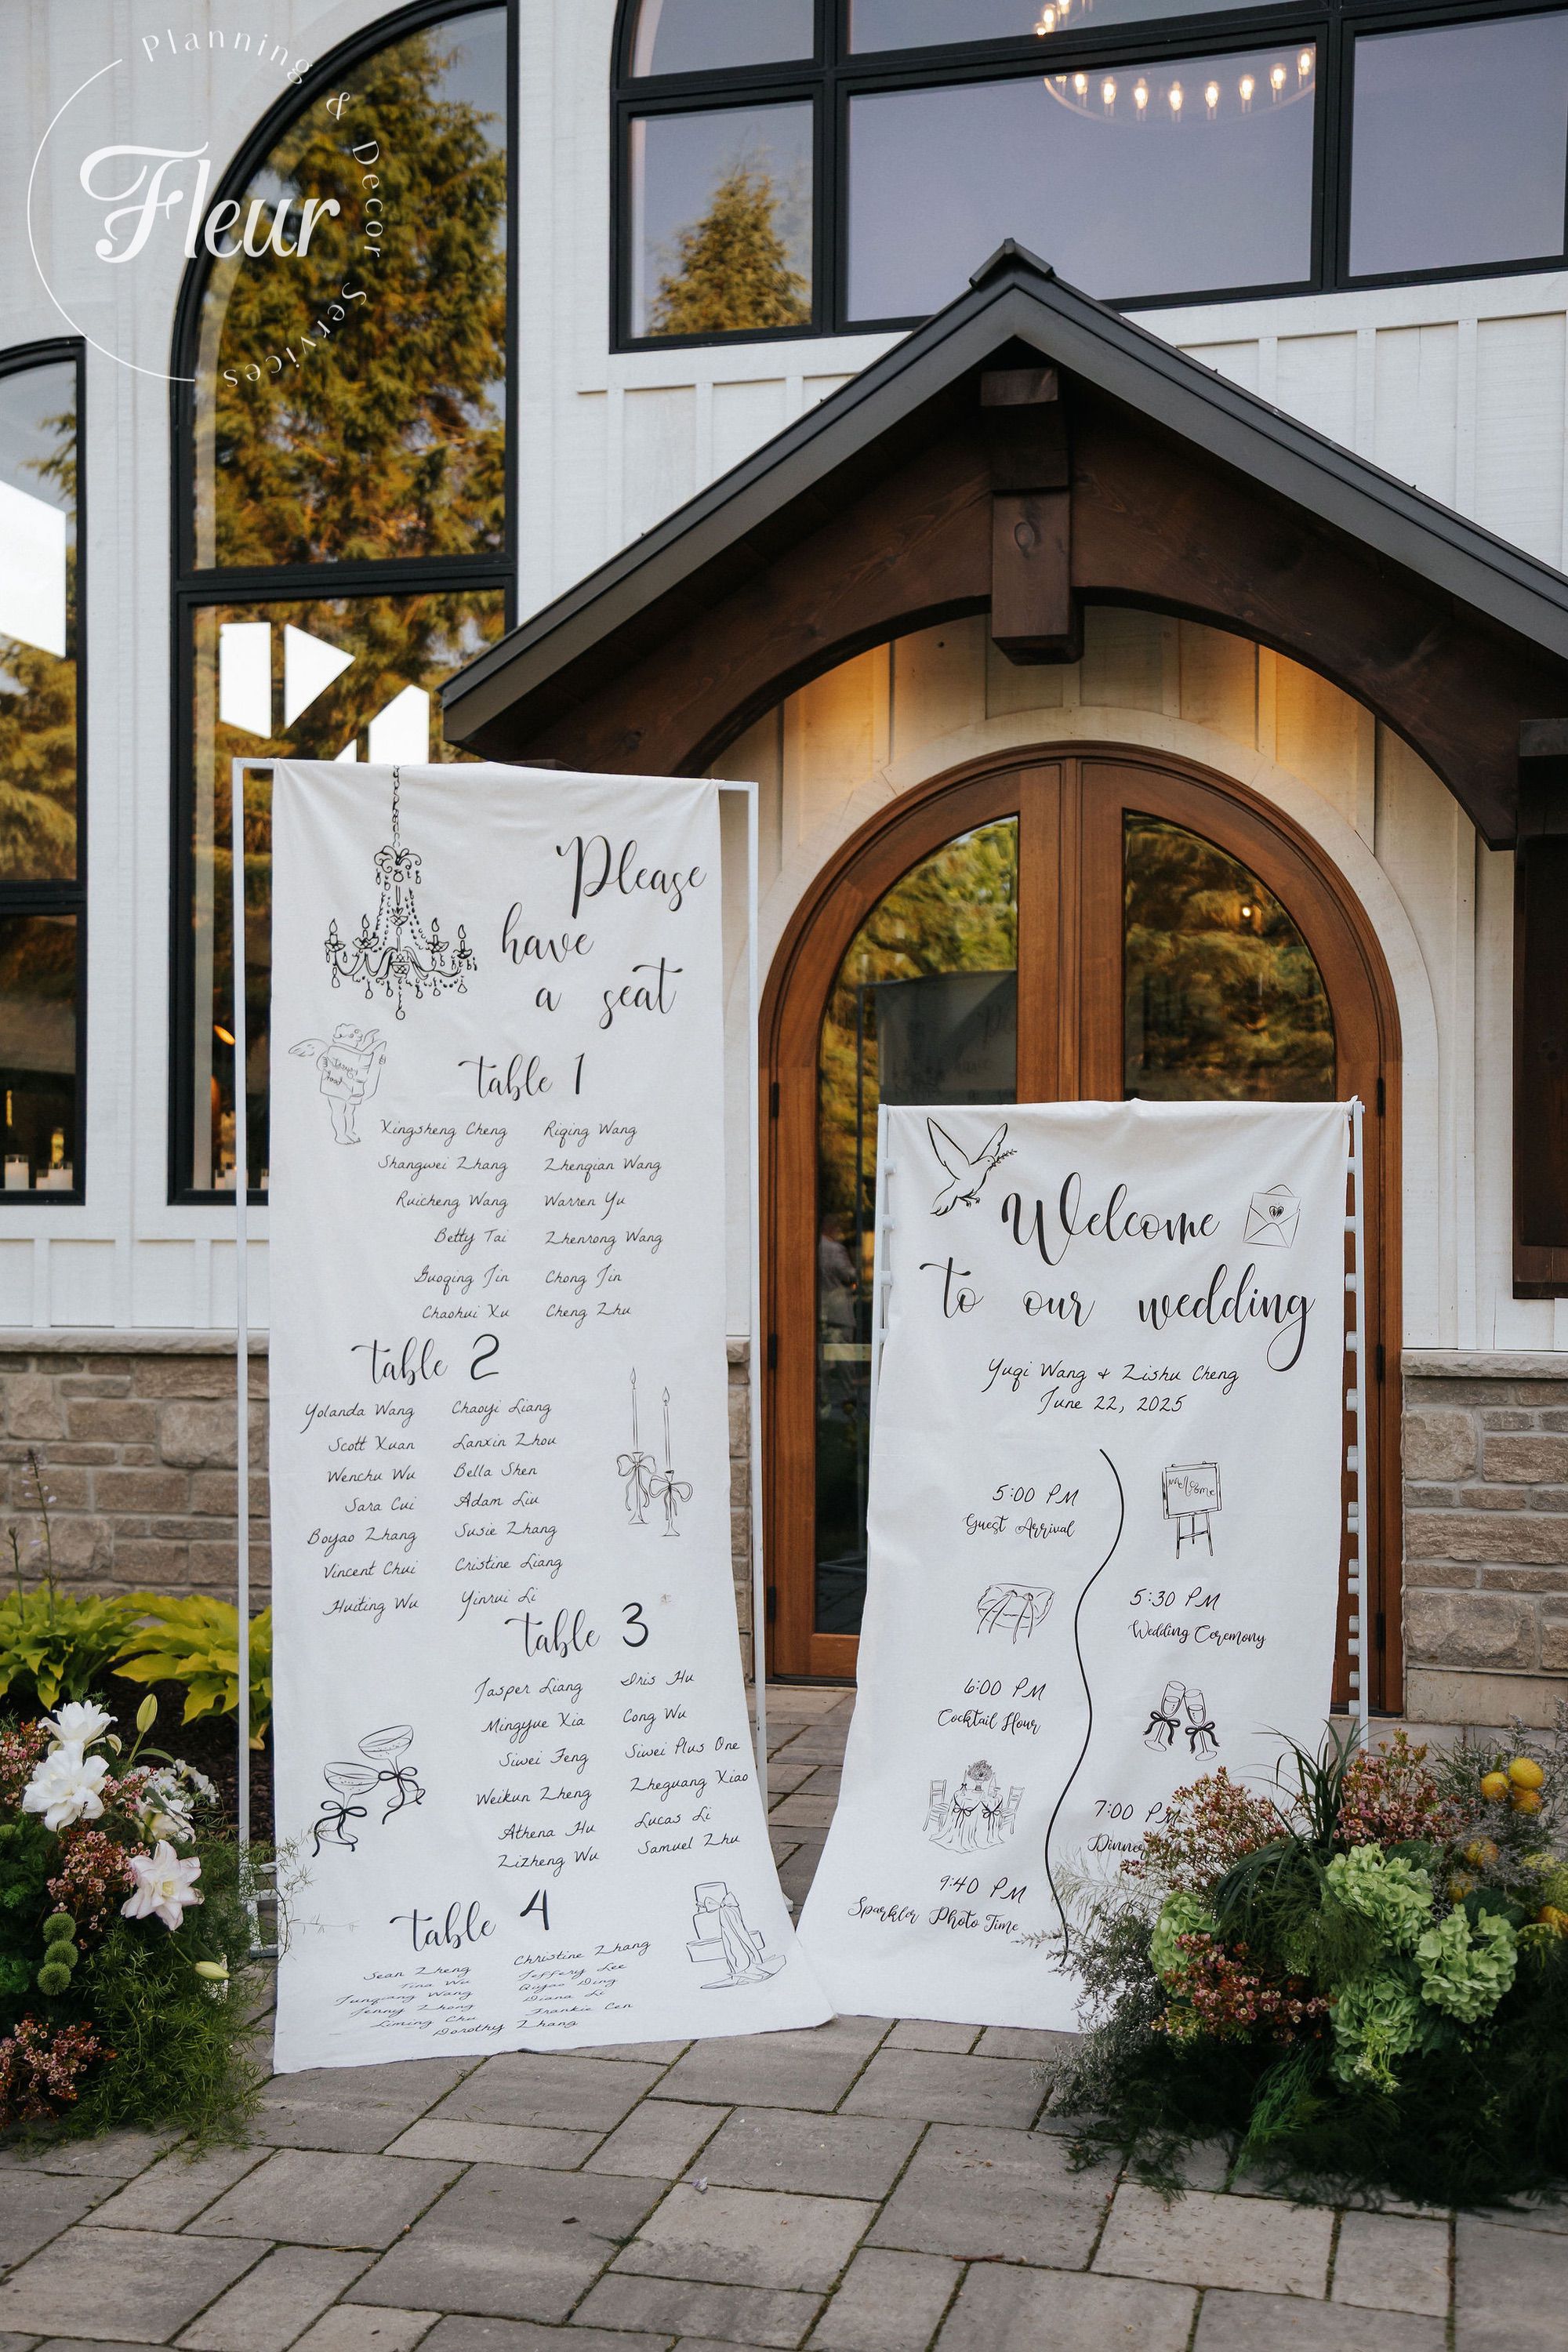 Planning & Decor Services
Fleur
Please
have
a seat
table 1
Xingsheng Cheng Riqing Wang
Shangwei Zhang Zhenqian Wang
Ruicheng Wang Warren Yu
Betty Tai Zhenrong Wang
Guoqing Jin Chong Jin
Chaohui Xu Cheng Zhu
table 2
Yolanda Wang Chaoyi Liang
Scott Xuan Lanxin Zhou
Wenchu Wu Bella Shen
Sara Cui Adam Liu
Boyao Zhang Susie Zhang
Vincent Chui Cristine Liang
Huiting Wu Yinrui Li
table 3
Jasper Liang Iris Hu
Mingyue Xia Cong Wu
Siwei Feng Siwei Plus One
Weikun Zheng Zheguang Xiao
Athena Hu Lucas Li
Zizheng Wu Samuel Zhu
table 4
Sean Zheng Christine Zhang
Tina Wu Jeffery Lee
Junqiang Wang Ding
Jenny Zhong Diana Li
Liming Chu Frankie Cen
Dorothy Zhang
Welcome
to our wedding
Yuqi Wang & Zishu Cheng
June 22, 2025
welcome
5:00 PM
Guest Arrival
5:30 PM
Wedding Ceremony
6:00 PM
Cocktail Hour
7:00 PM
Dinner
9:40 PM
Sparkler Photo Time